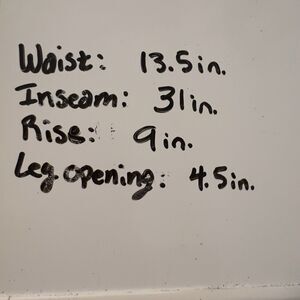 Waist: 13.5in.
Inseam: 31in.
Rise: 9in.
Leg opening: 4.5in.